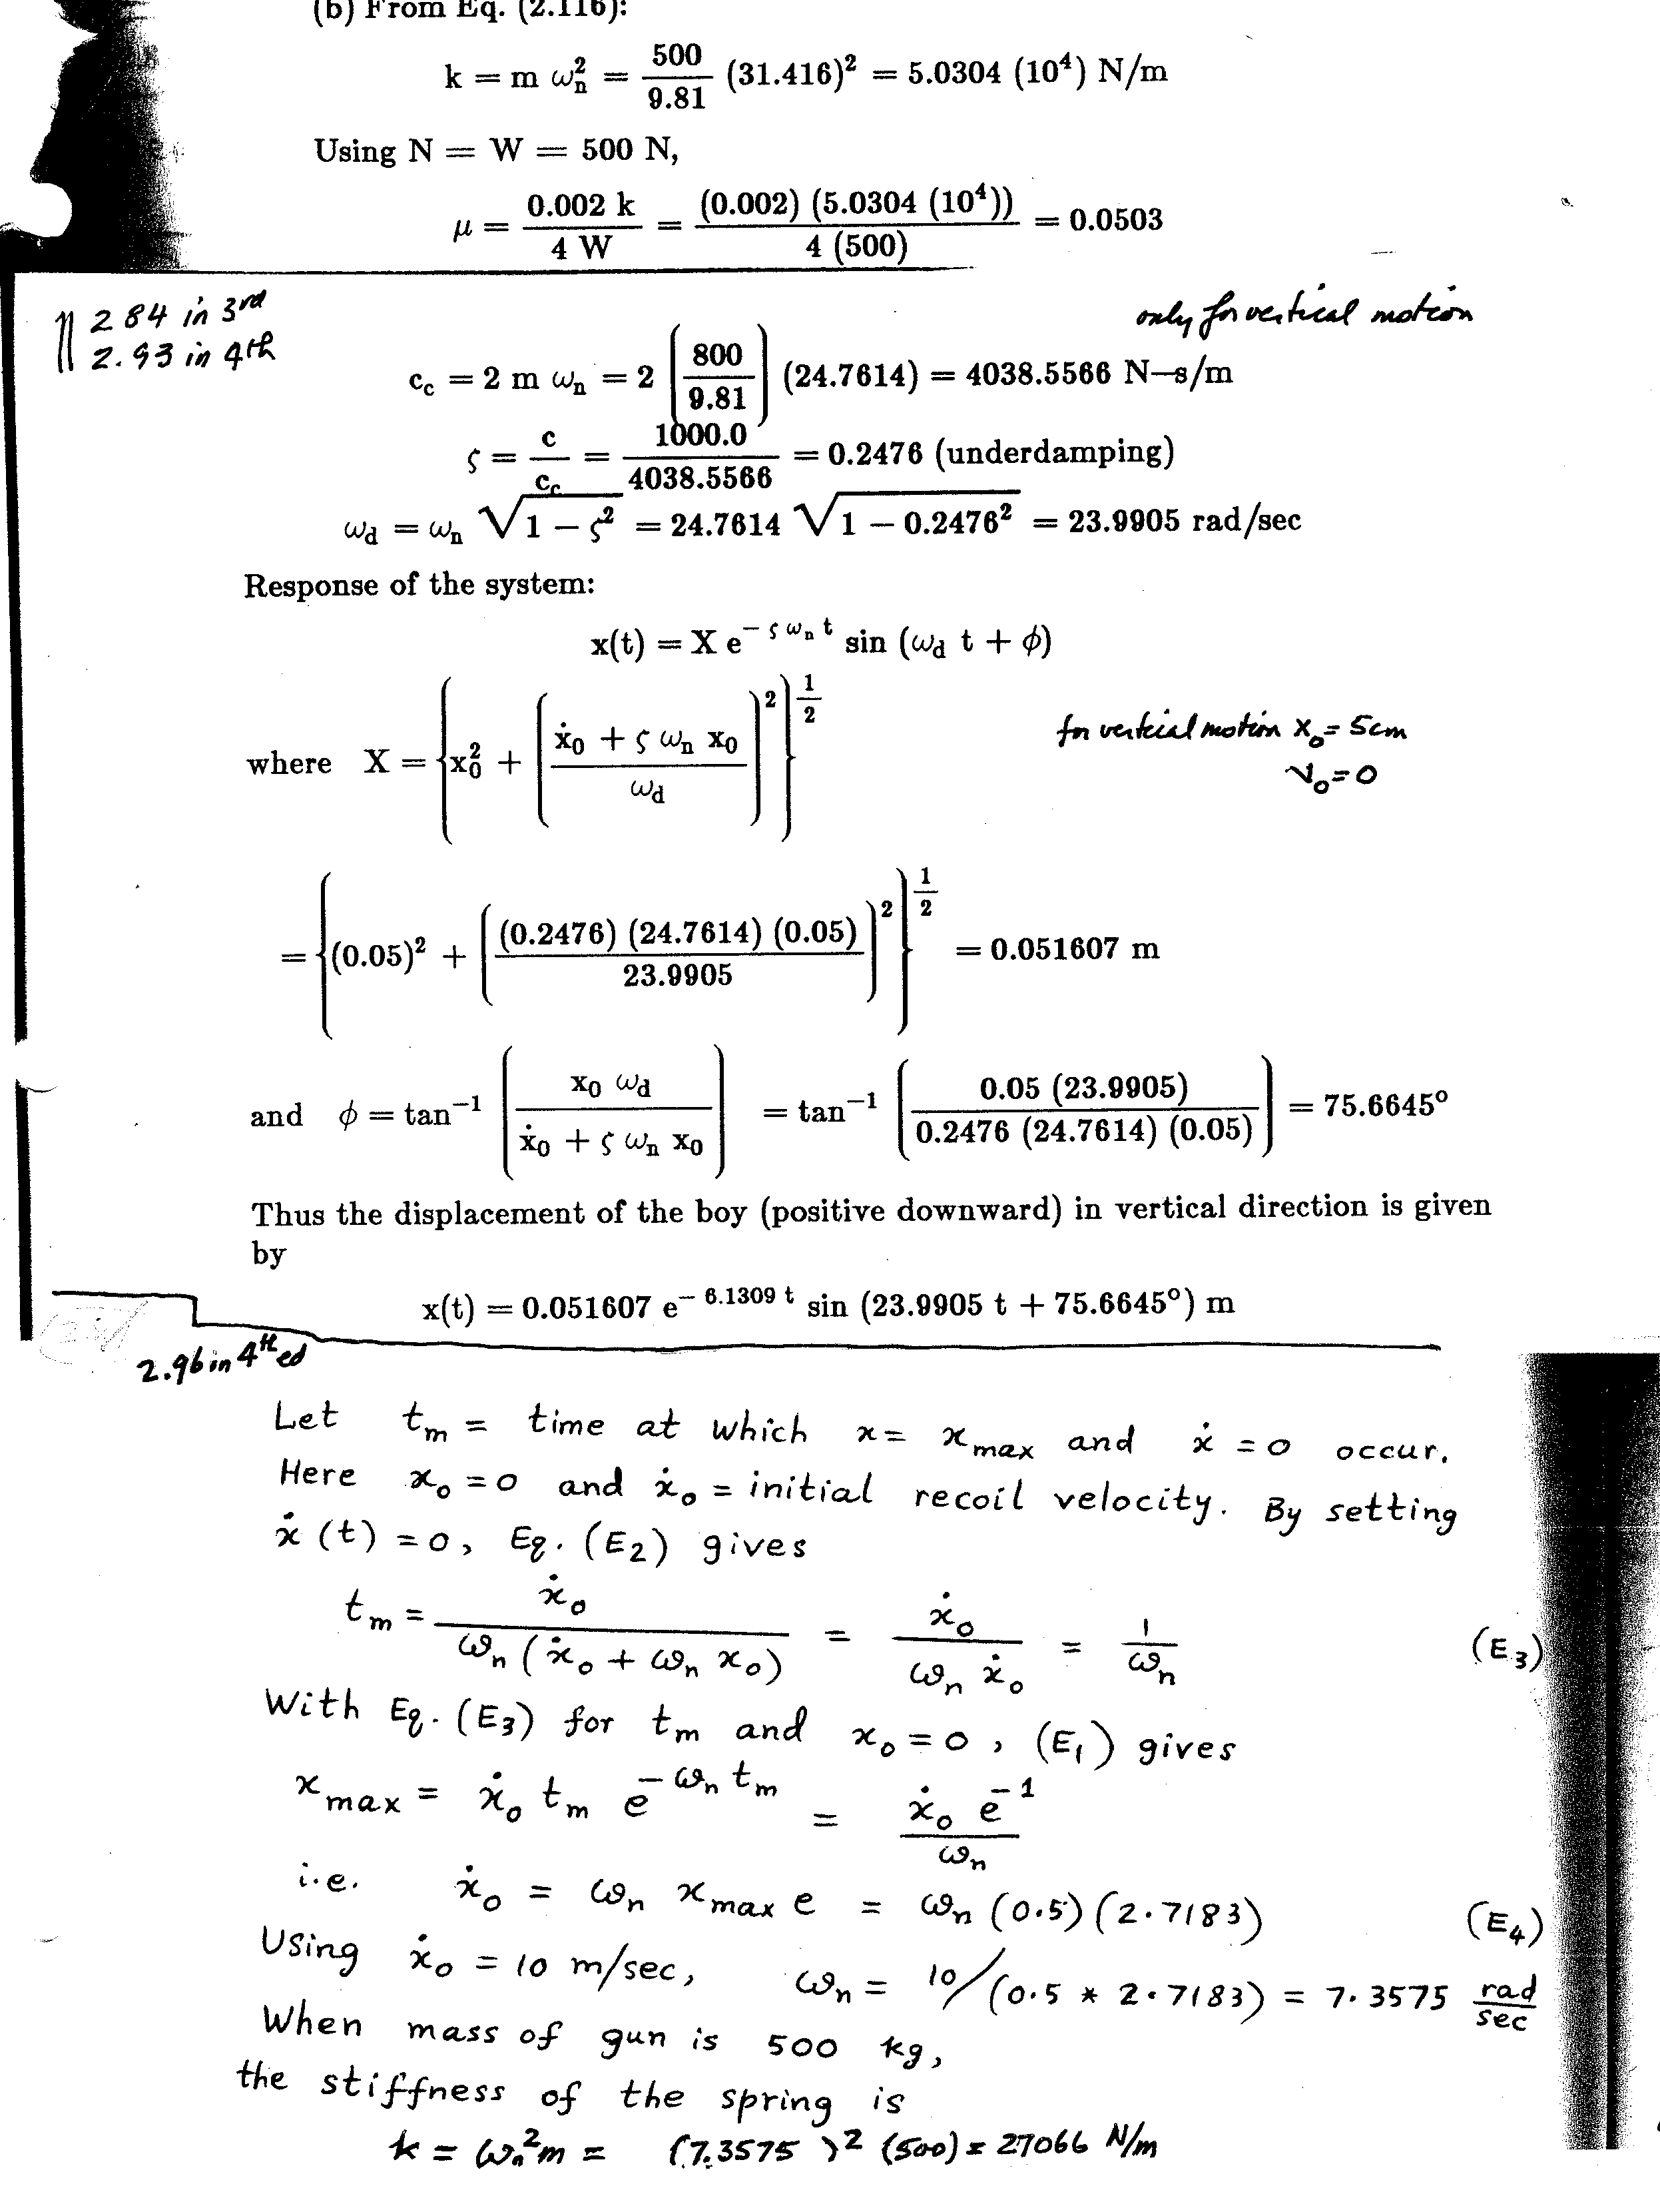 (b) From Eq. (2.116):
k = m ωₙ² = 500/9.81 (31.416)² = 5.0304 (10⁴) N/m
Using N = W = 500 N,
μ = 0.002 k / 4 W = (0.002) (5.0304 (10⁴)) / 4 (500) = 0.0503
2 84 in 3rd
2.93 in 4th
only for vertical motion
c_c = 2 m ωₙ = 2 (800/9.81) (24.7614) = 4038.5566 N–s/m
ς = c/c_c = 1000.0/4038.5566 = 0.2476 (underdamping)
ω_d = ωₙ √(1 – ς²) = 24.7614 √(1 – 0.2476²) = 23.9905 rad/sec
Response of the system:
x(t) = X e^(– ς ωₙ t) sin (ω_d t + φ)
where X = {x₀² + ((ẋ₀ + ς ωₙ x₀)/ω_d)²}^(1/2)
for vertical motion x₀ = 5cm
v₀ = 0
= {(0.05)² + ((0.2476) (24.7614) (0.05)/23.9905)²}^(1/2) = 0.051607 m
and φ = tan⁻¹ (x₀ ω_d / (ẋ₀ + ς ωₙ x₀)) = tan⁻¹ (0.05 (23.9905) / 0.2476 (24.7614) (0.05)) = 75.6645°
Thus the displacement of the boy (positive downward) in vertical direction is given
by
x(t) = 0.051607 e^(– 6.1309 t) sin (23.9905 t + 75.6645°) m
2.96 in 4th ed
Let tₘ = time at which x = x_max and ẋ = 0 occur.
Here x₀ = 0 and ẋ₀ = initial recoil velocity. By setting
ẋ (t) = 0, Eq. (E₂) gives
tₘ = ẋ₀ / ωₙ (ẋ₀ + ωₙ x₀) = ẋ₀ / ωₙ ẋ₀ = 1/ωₙ (E₃)
With Eq. (E₃) for tₘ and x₀ = 0, (E₁) gives
x_max = ẋ₀ tₘ e^(–ωₙ tₘ) = ẋ₀ e⁻¹ / ωₙ
i.e. ẋ₀ = ωₙ x_max e = ωₙ (0.5) (2.7183) (E₄)
Using ẋ₀ = 10 m/sec, ωₙ = 10/(0.5 * 2.7183) = 7.3575 rad/sec
When mass of gun is 500 kg,
the stiffness of the spring is
k = ωₙ² m = (7.3575)² (500) = 27066 N/m